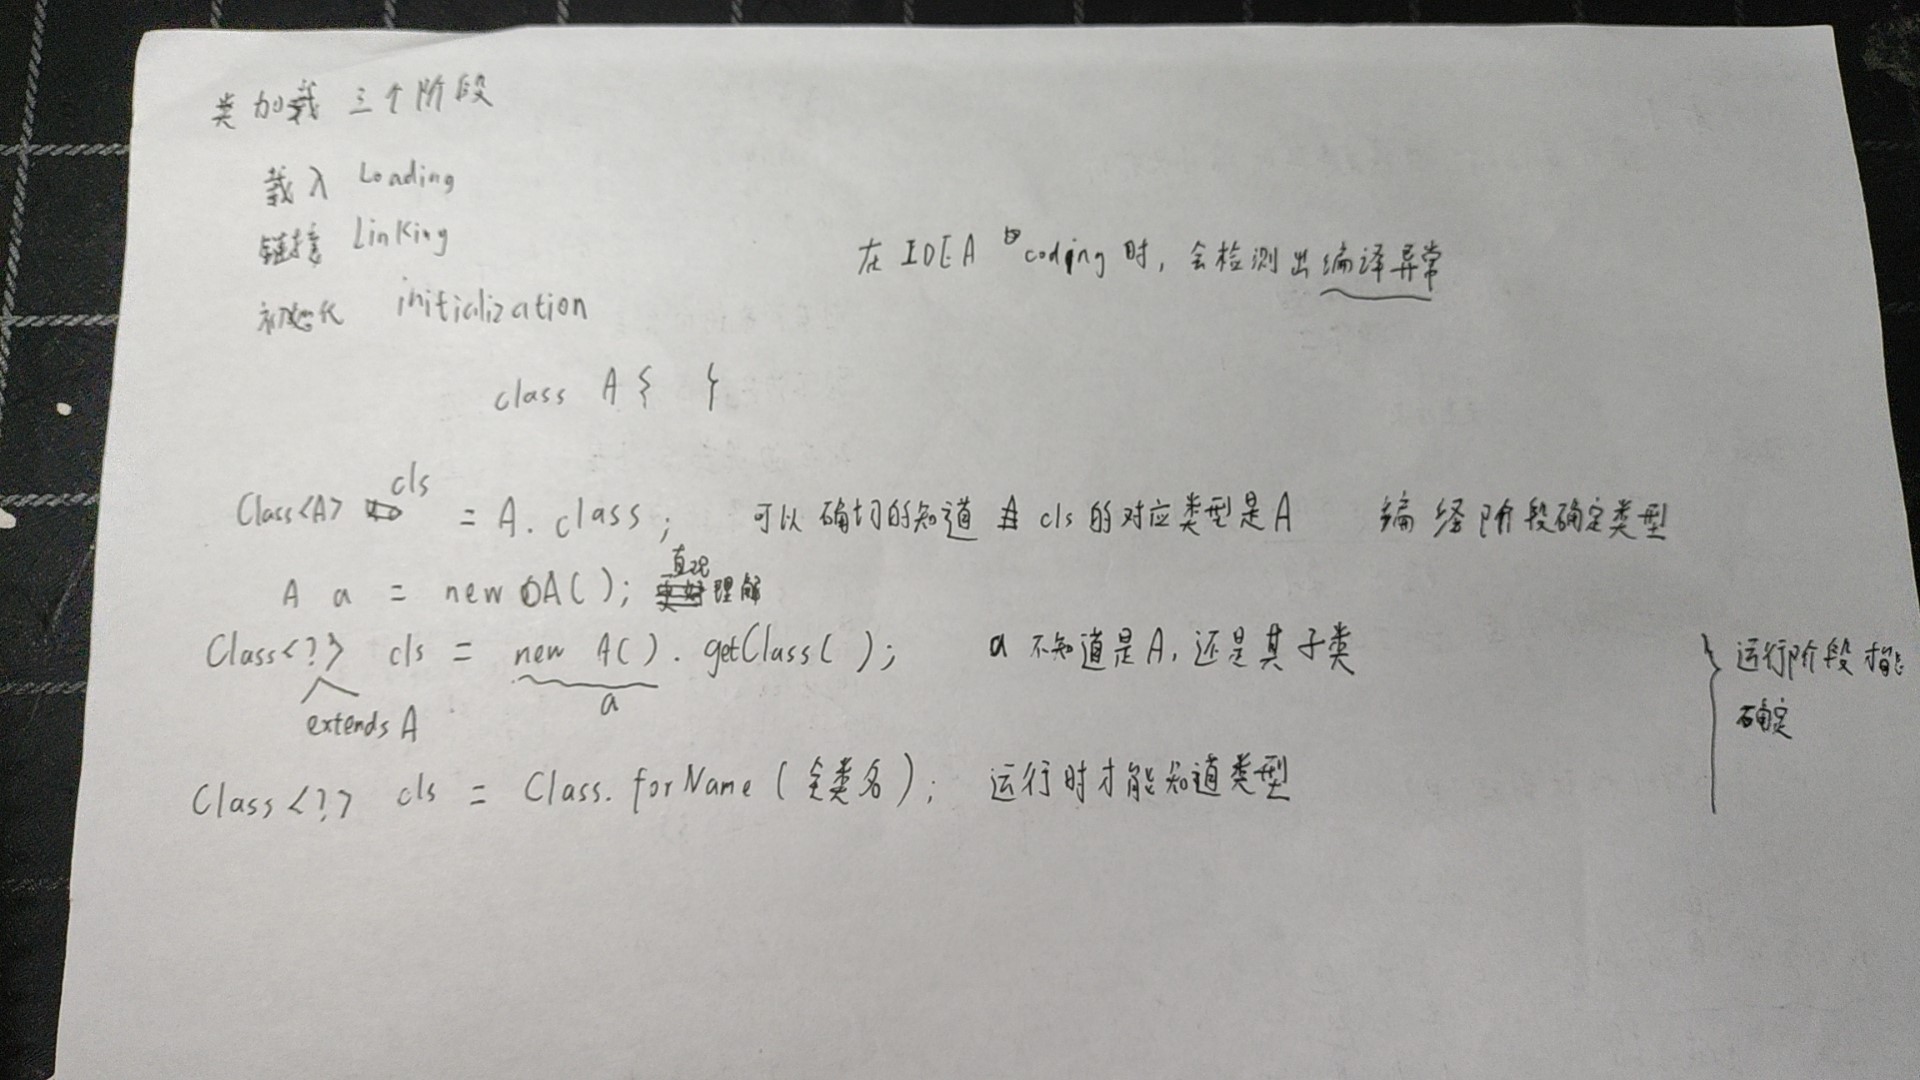 类加载 三个阶段
载入 Loading
链接 Linking
初始化 initialization
在 IDEA 中 coding 时，会检测出编译异常
class A { }
Class<A> cls = A.class; 可以确切的知道 cls 的对应类型是A 编译阶段确定类型
A a = new A(); 直观理解
Class<?> cls = new A().getClass(); a 不知道是A，还是其子类
extends A
a
运行阶段才能
确定
Class<?> cls = Class.forName(全类名); 运行时才能知道类型